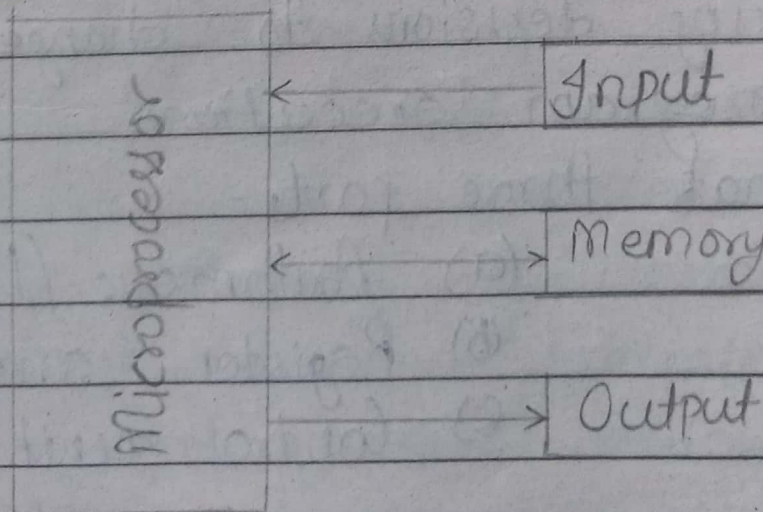 Microprocessor
Input
Memory
Output